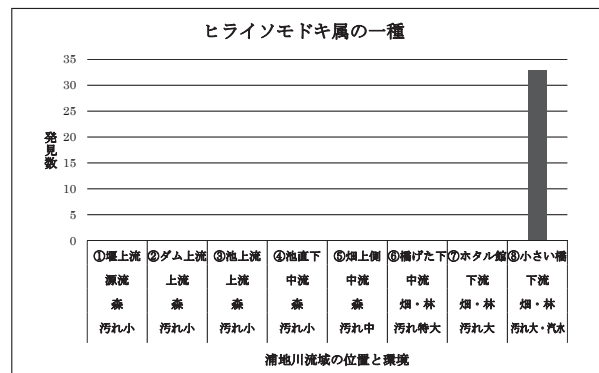 ヒライソモドキ属の一種
35
30
25
20
15
10
5
0
発見数
①堰上流 ②ダム上流 ③池上流 ④池直下 ⑤畑上側 ⑥橋げた下 ⑦ホタル館 ⑧小さい橋
源流 上流 上流 中流 中流 中流 下流 下流
森 森 森 森 森 畑・林 畑・林 畑・林
汚れ小 汚れ小 汚れ小 汚れ小 汚れ中 汚れ特大 汚れ大 汚れ大・汽水
浦地川流域の位置と環境